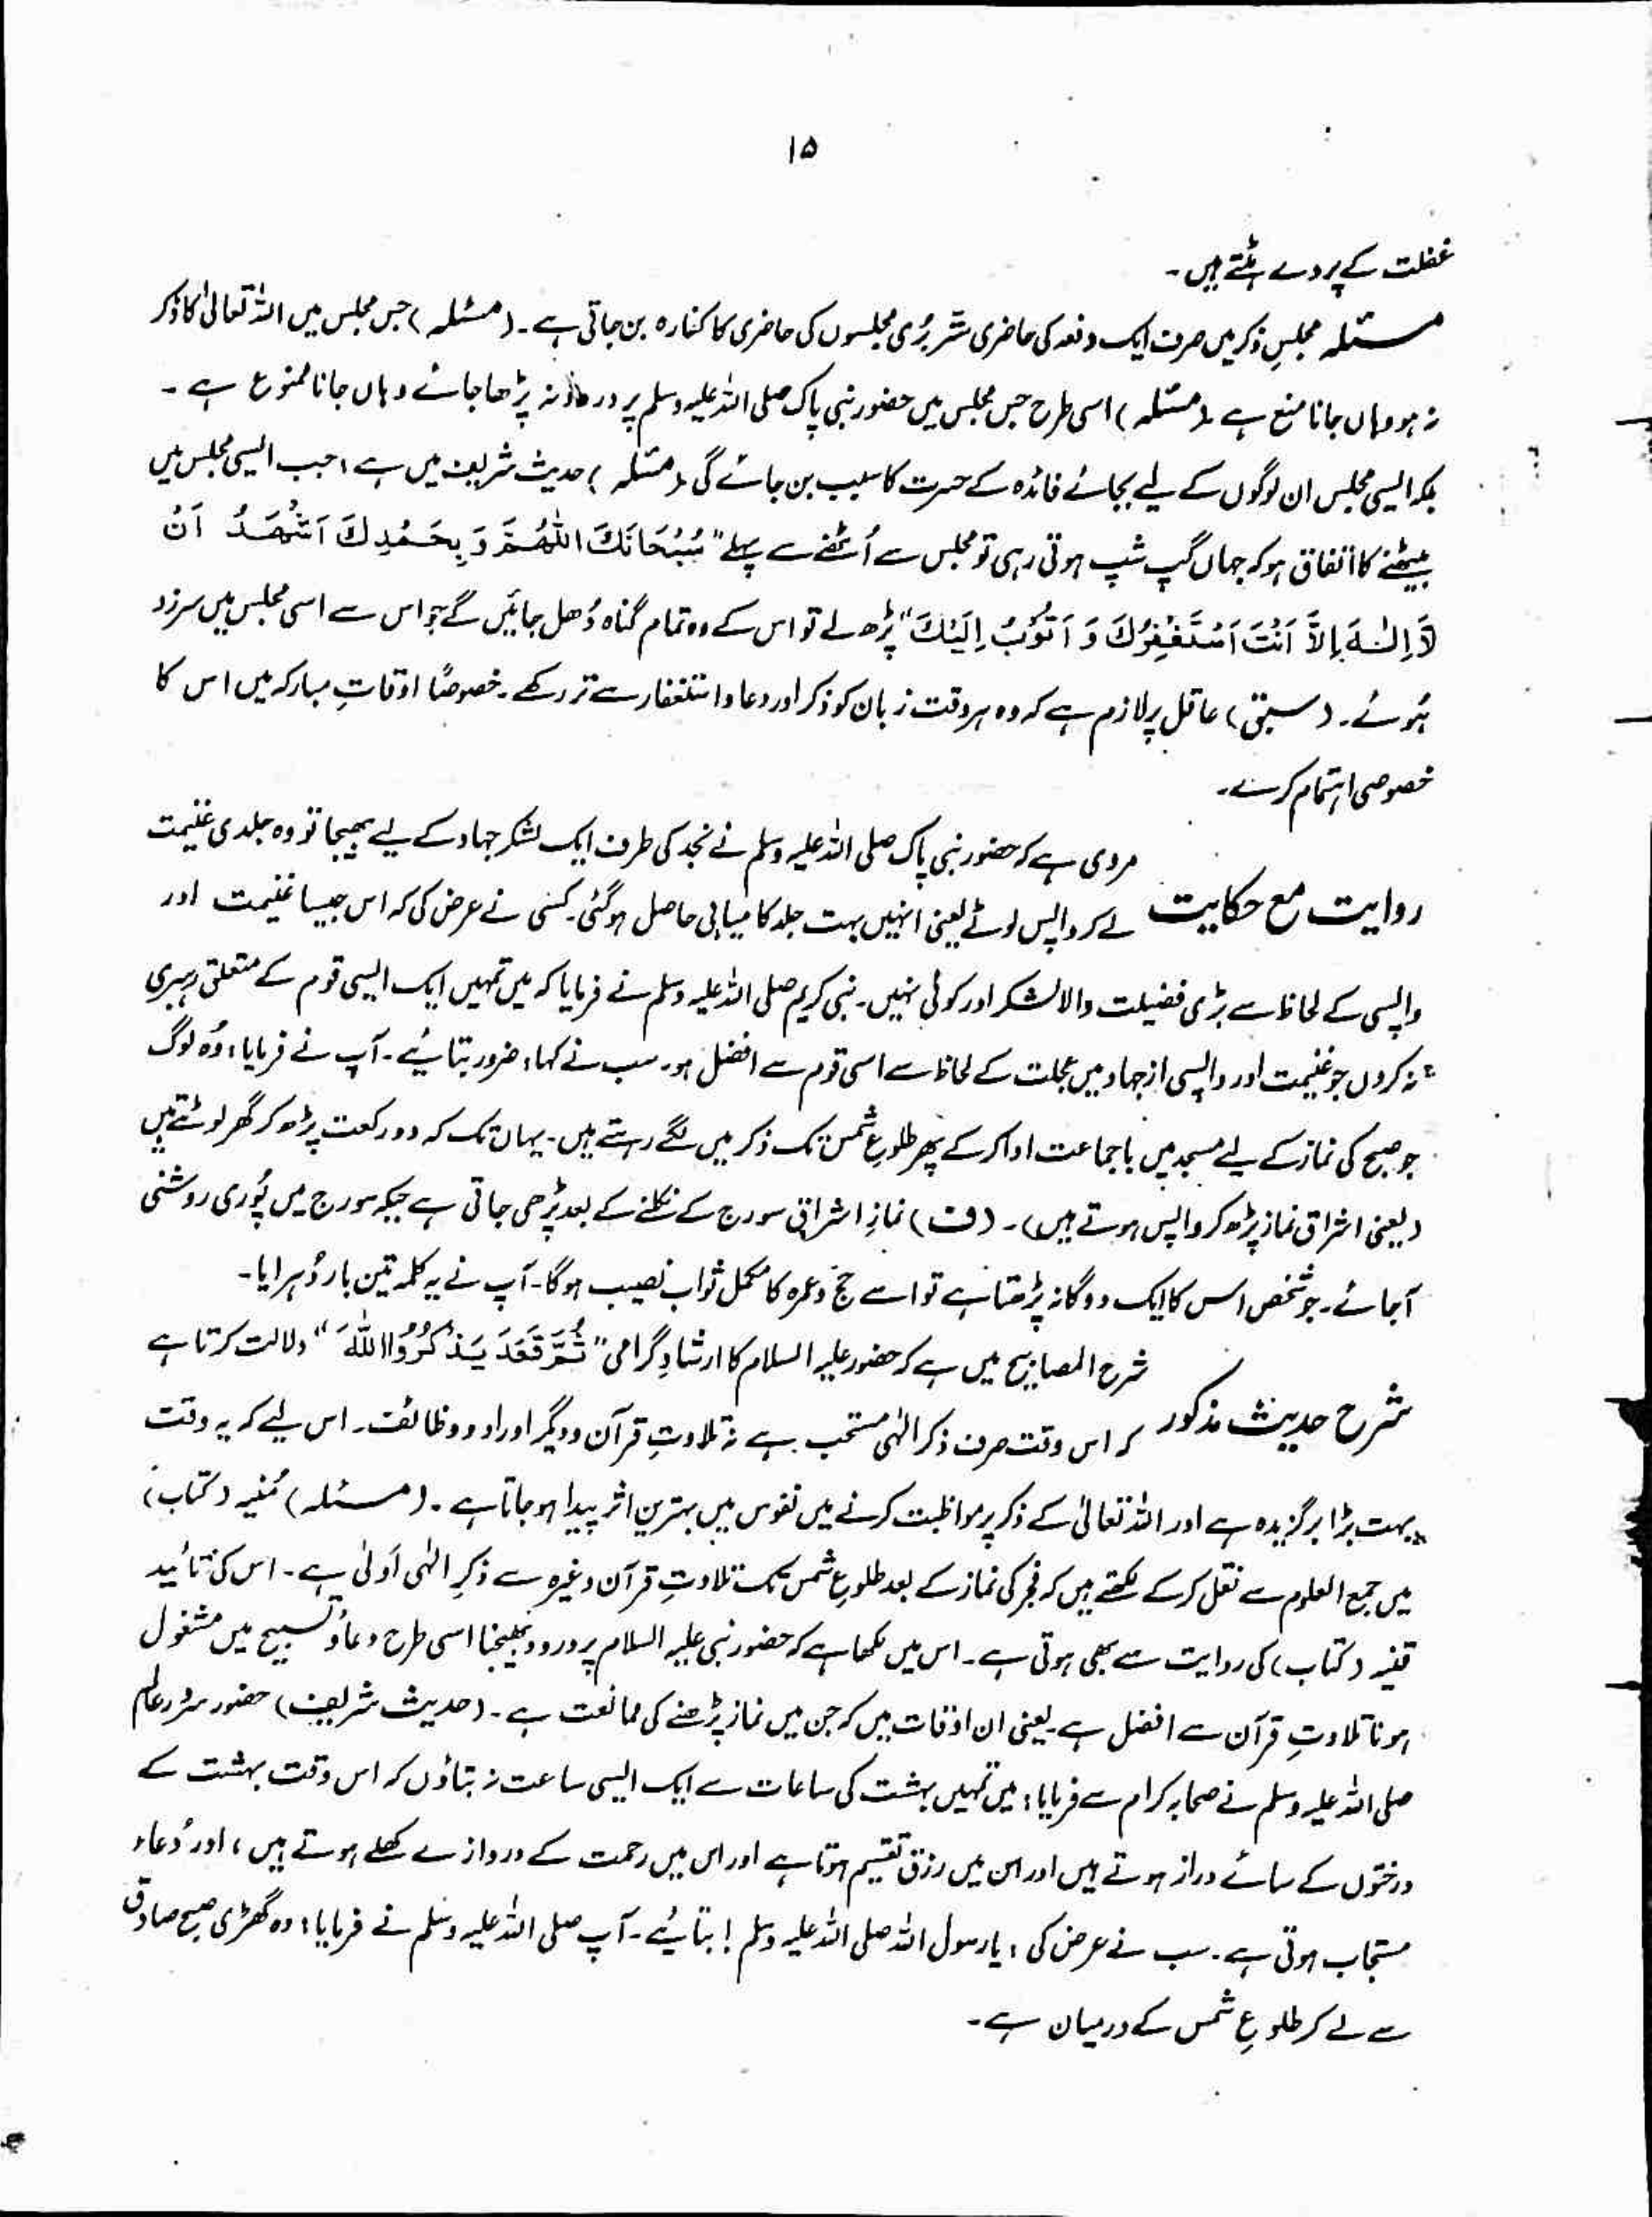 ۱۵
غفلت کے پردے ہٹتے ہیں۔
مسئلہ مجلسِ ذکر میں صرف ایک دفعہ کی حاضری ستّر بُری مجلسوں کی حاضری کا کفارہ بن جاتی ہے۔ (مسئلہ) جس مجلس میں اللہ تعالیٰ کا ذکر
نہ ہو وہاں جانا منع ہے (مسئلہ) اسی طرح جس مجلس میں حضور نبی پاک صلی اللہ علیہ وسلم پر درود نہ پڑھا جائے وہاں جانا ممنوع ہے۔
بلکہ ایسی مجلس ان لوگوں کے لیے بجائے فائدہ کے حسرت کا سبب بن جائے گی (مسئلہ) حدیث شریف میں ہے، جب ایسی مجلس میں
بیٹھنے کا اتفاق ہو کہ جہاں گپ شپ ہوتی رہی تو مجلس سے اُٹھنے سے پہلے "سُبْحَانَكَ اللّٰهُمَّ وَ بِحَمْدِكَ اَشْهَدُ اَنْ
لَّا اِلٰهَ اِلَّا اَنْتَ اَسْتَغْفِرُكَ وَ اَتُوْبُ اِلَيْكَ" پڑھ لے تو اس کے وہ تمام گناہ دُھل جائیں گے جو اس سے اسی مجلس میں سرزد
ہُوئے۔ (سبق) عاقل پر لازم ہے کہ وہ ہر وقت زبان کو ذکر اور دعا و استغفار سے تر رکھے۔ خصوصًا اوقاتِ مبارکہ میں اس کا
خصوصی اہتمام کرے۔
مروی ہے کہ حضور نبی پاک صلی اللہ علیہ وسلم نے نجد کی طرف ایک لشکر جہاد کے لیے بھیجا تو وہ جلدی غنیمت
روایت مع حکایت لے کر واپس لوٹے یعنی انہیں بہت جلد کامیابی حاصل ہوگئی۔ کسی نے عرض کی کہ اس جیسا غنیمت اور
واپسی کے لحاظ سے بڑی فضیلت والا لشکر اور کوئی نہیں۔ نبی کریم صلی اللہ علیہ وسلم نے فرمایا کہ میں تمہیں ایک ایسی قوم کے متعلق رہبری
نہ کروں جو غنیمت اور واپسی از جہاد میں عجلت کے لحاظ سے اسی قوم سے افضل ہو۔ سب نے کہا: ضرور بتائیے۔ آپ نے فرمایا: وُہ لوگ
جو صبح کی نماز کے لیے مسجد میں باجماعت ادا کر کے پھر طلوعِ شمس تک ذکر میں لگے رہتے ہیں۔ یہاں تک کہ دو رکعت پڑھ کر گھر لوٹتے ہیں
(یعنی اشراق نماز پڑھ کر واپس ہوتے ہیں)۔ (ف) نمازِ اشراق سورج کے نکلنے کے بعد پڑھی جاتی ہے جبکہ سورج میں پُوری روشنی
آ جائے۔ جو شخص اس کا ایک دوگانہ پڑھتا ہے تو اسے حج و عمرہ کا مکمل ثواب نصیب ہوگا۔ آپ نے یہ کلمہ تین بار دُہرایا۔
شرح المصابیح میں ہے کہ حضور علیہ السلام کا ارشادِ گرامی "ثُمَّ قَعَدَ يَذْكُرُوا اللهَ" دلالت کرتا ہے
شرح حدیث مذکور کہ اس وقت صرف ذکر الٰہی مستحب ہے نہ تلاوتِ قرآن و دیگر اوراد و وظائف۔ اس لیے کہ یہ وقت
بہت بڑا برگزیدہ ہے اور اللہ تعالیٰ کے ذکر پر مواظبت کرنے میں نفوس میں بہترین اثر پیدا ہو جاتا ہے۔ (مسئلہ) مُنیہ (کتاب)
میں جمع العلوم سے نقل کر کے لکھتے ہیں کہ فجر کی نماز کے بعد طلوعِ شمس تک تلاوتِ قرآن وغیرہ سے ذکرِ الٰہی اَولیٰ ہے۔ اس کی تائید
قنیہ (کتاب) کی روایت سے بھی ہوتی ہے۔ اس میں لکھا ہے کہ حضور نبی علیہ السلام پر درود بھیجنا اسی طرح دعا و تسبیح میں مشغول
ہونا تلاوتِ قرآن سے افضل ہے یعنی ان اوقات میں کہ جن میں نماز پڑھنے کی ممانعت ہے۔ (حدیث شریف) حضور سرورِ عالم
صلی اللہ علیہ وسلم نے صحابہ کرام سے فرمایا: میں تمہیں بہشت کی ساعات سے ایک ایسی ساعت نہ بتاؤں کہ اس وقت بہشت کے
درختوں کے سائے دراز ہوتے ہیں اور اس میں رزق تقسیم ہوتا ہے اور اس میں رحمت کے دروازے کھلے ہوتے ہیں، اور دُعاء
مستجاب ہوتی ہے۔ سب نے عرض کی: یارسول اللہ صلی اللہ علیہ وسلم! بتائیے۔ آپ صلی اللہ علیہ وسلم نے فرمایا: وہ گھڑی صبح صادق
سے لے کر طلوعِ شمس کے درمیان ہے۔